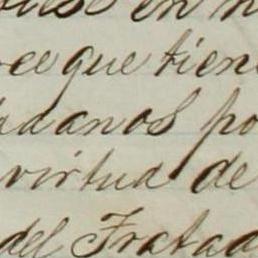 en
ce que tiene
adanos po
virtud de
del Tratad